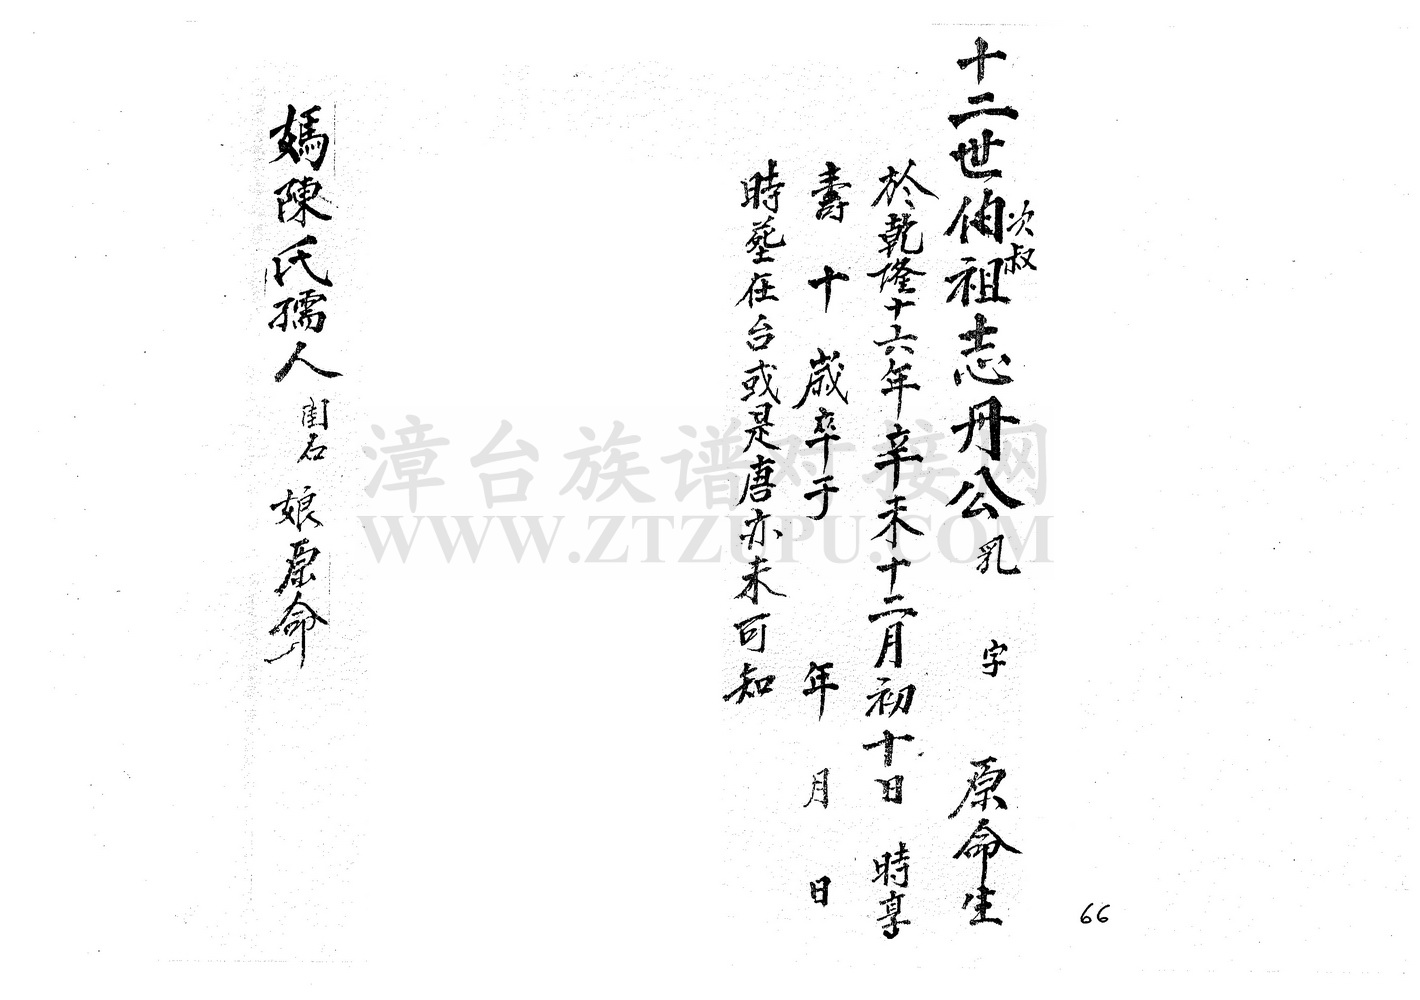 十二世伯祖志丹公乳　字　原命生
次叔
於乾隆十六年辛未十二月初十日　時享
壽　十　歲卒于　年　月　日
時塟在台或是唐亦未可知
媽陳氏孺人閨名　娘原命
漳台族谱对接网
WWW.ZTZUPU.COM
66